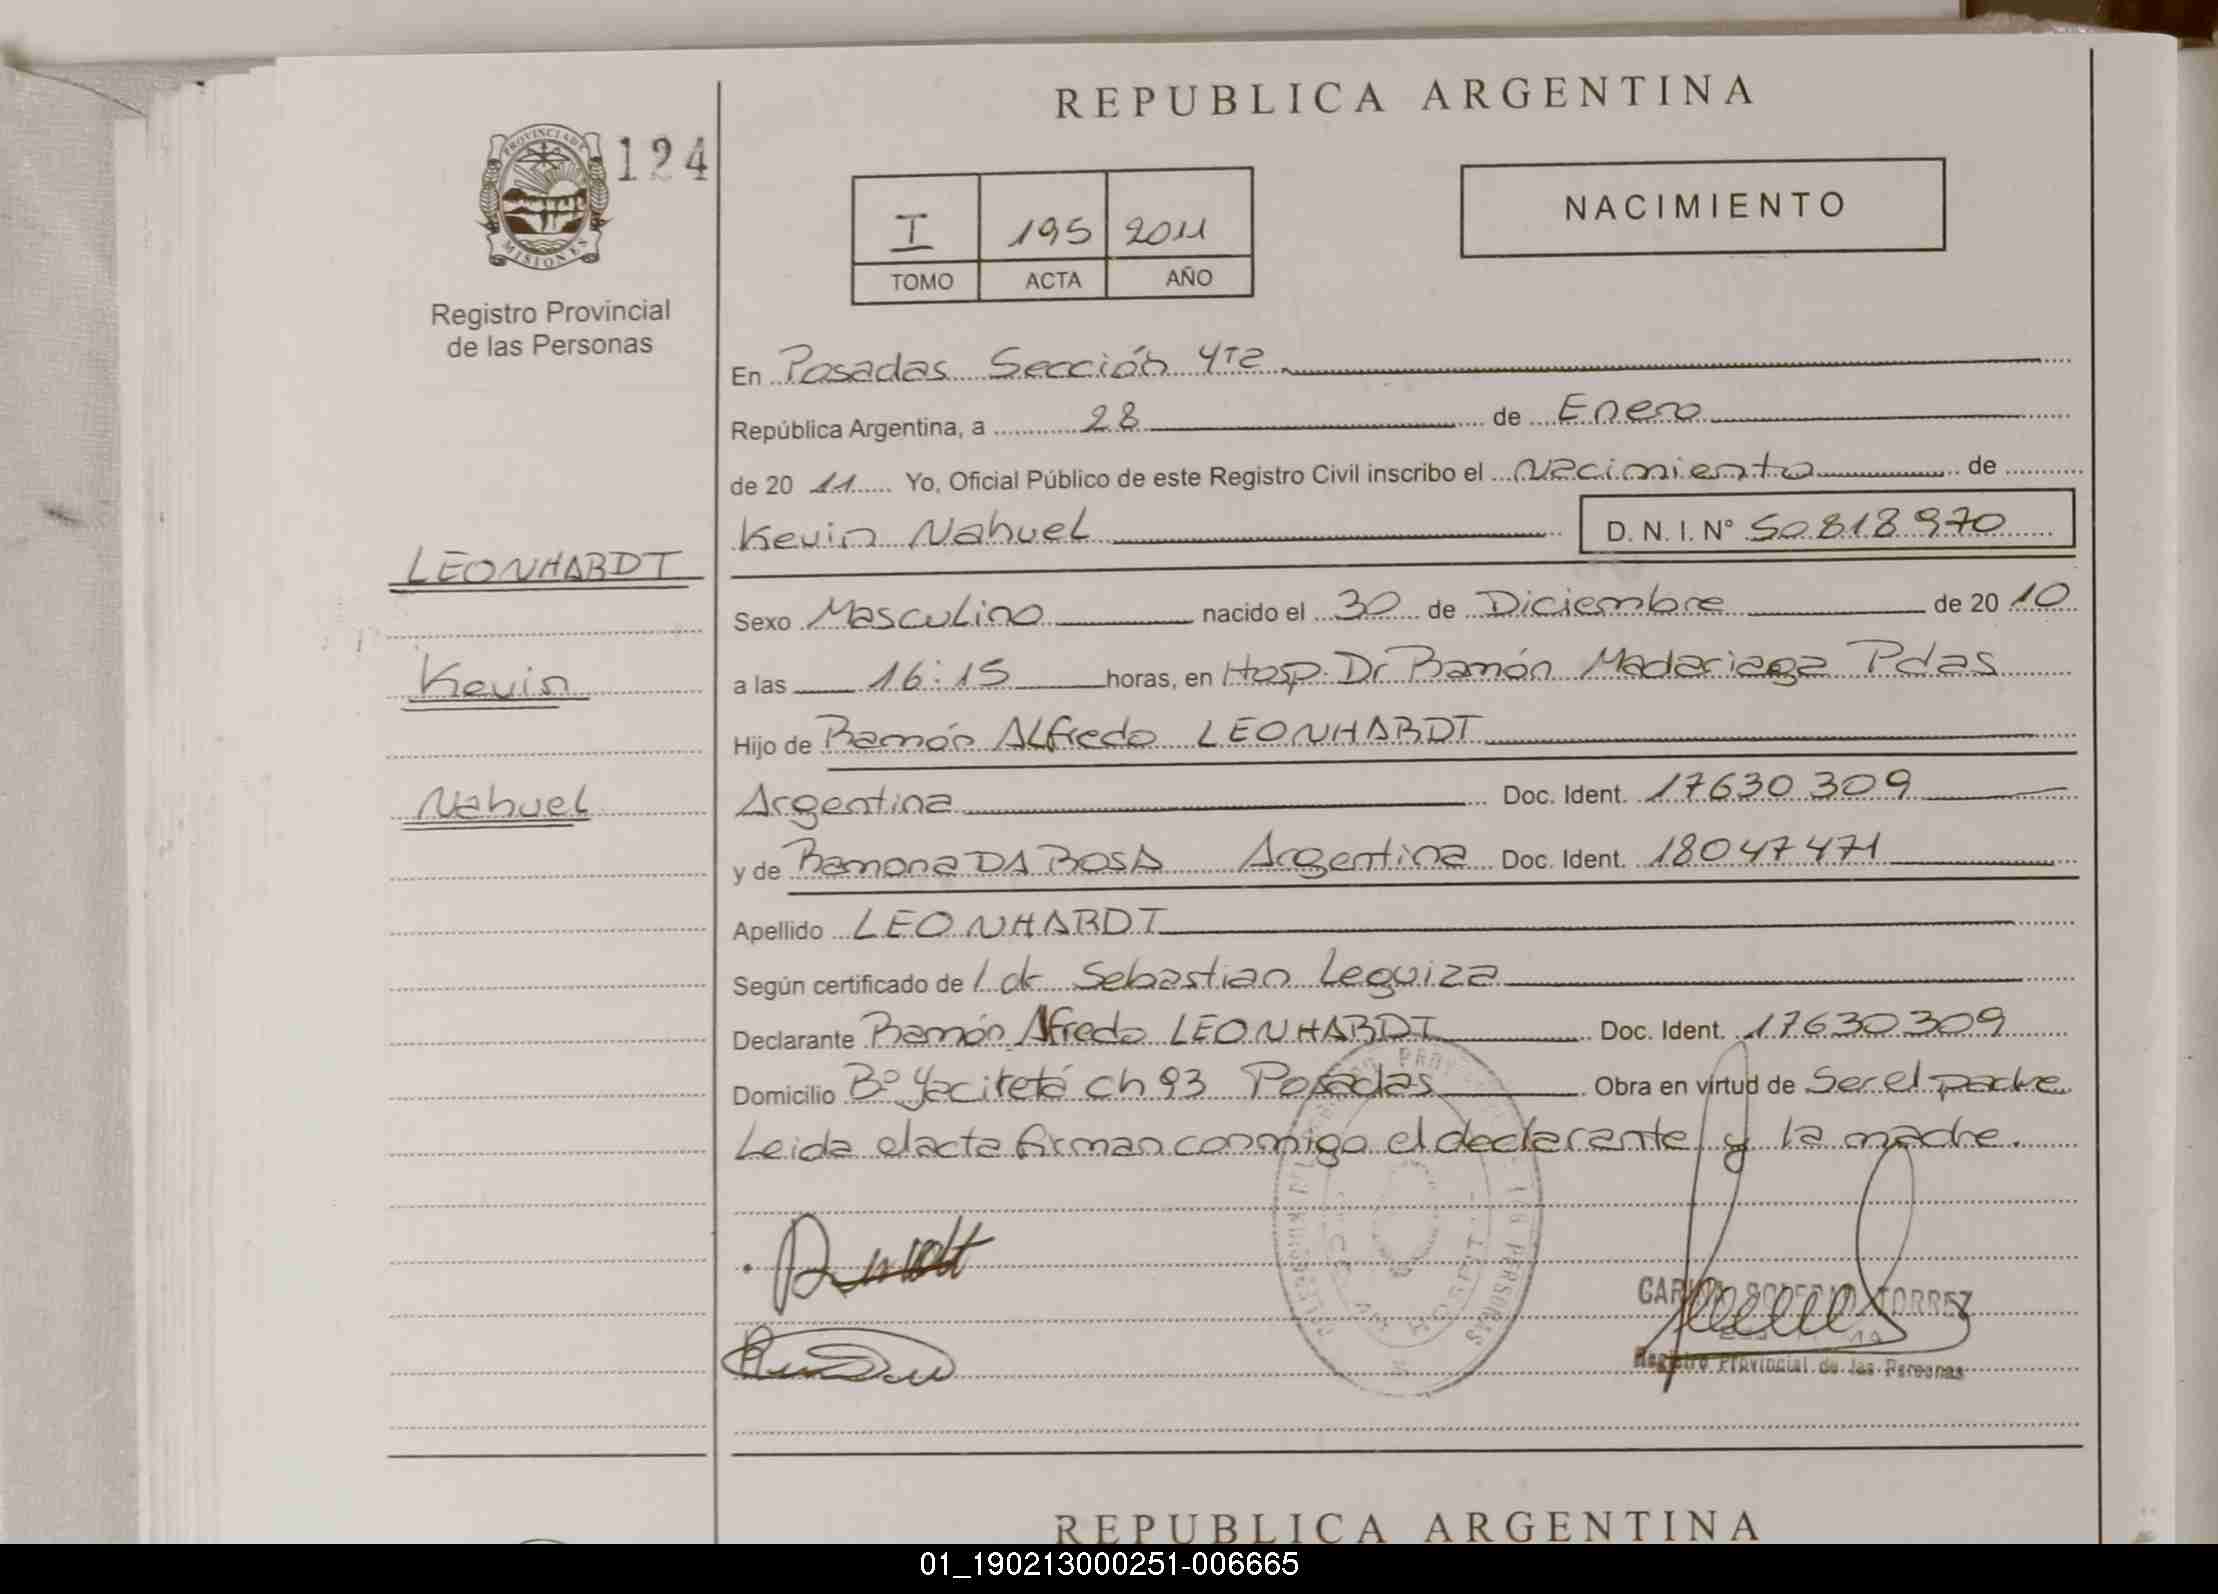 REPUBLICA ARGENTINA
PROVINCIA DE
MISIONES
124
NACIMIENTO
I 195 2011
TOMO ACTA AÑO
Registro Provincial
de las Personas
En Posadas Sección 4ta
República Argentina, a 28 de Enero
de 20 11 Yo, Oficial Público de este Registro Civil inscribo el Nacimiento de
Kevin Nahuel D. N. I. Nº 50818970
LEONHARDT
Sexo Masculino nacido el 30 de Diciembre de 20 10
Kevin
a las 16:15 horas, en Hosp. Dr Ramón Madariaga Pdas
Hijo de Ramón ALfredo LEONHARDT
Nahuel
Argentina Doc. Ident. 17630309
y de Ramona DA ROSA Argentina Doc. Ident. 18047471
Apellido LEONHARDT
Según certificado de Sebastian Leguiza
Declarante Ramón Alfredo LEONHARDT Doc. Ident. 17630309
Domicilio Bº Yaciretá ch 93 Posadas Obra en virtud de Ser el padre
Leida el acta firman conmigo el declarante y la madre.
TORREZ
Registro Provincial de las Personas
REPUBLICA ARGENTINA
01_190213000251-006665